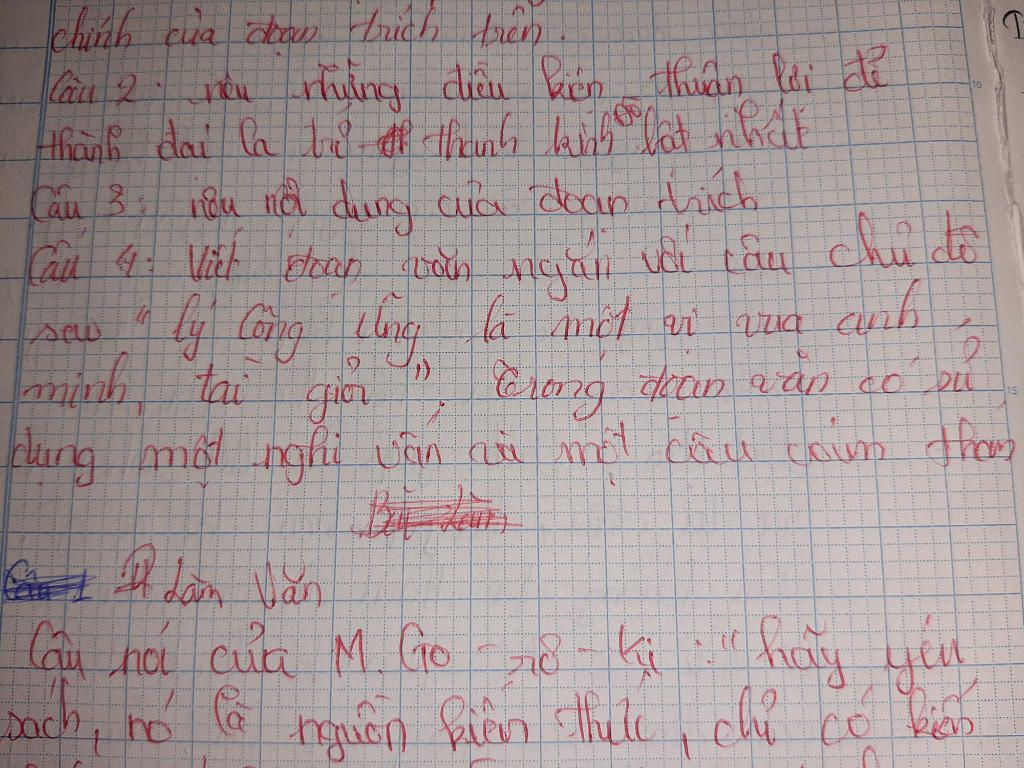 chính của đoạn trích trên.
Câu 2: nêu những điều kiện thuận lợi để
thành đại la trở thanh kinh đô bật nhất
Câu 3: nêu nội dung của đoạn trích
Câu 4: Viết đoạn văn ngắn với câu chủ đề
sau "Lý Công Uẩn là một vị vua anh
minh, tài giỏi"; trong đoạn văn có sử
dụng một nghi vấn và một câu cảm thán
II Làm Văn
Câu nói của M. Go-rơ-ki: "hãy yêu
sách, nó là nguồn kiến thức, chỉ có kiến